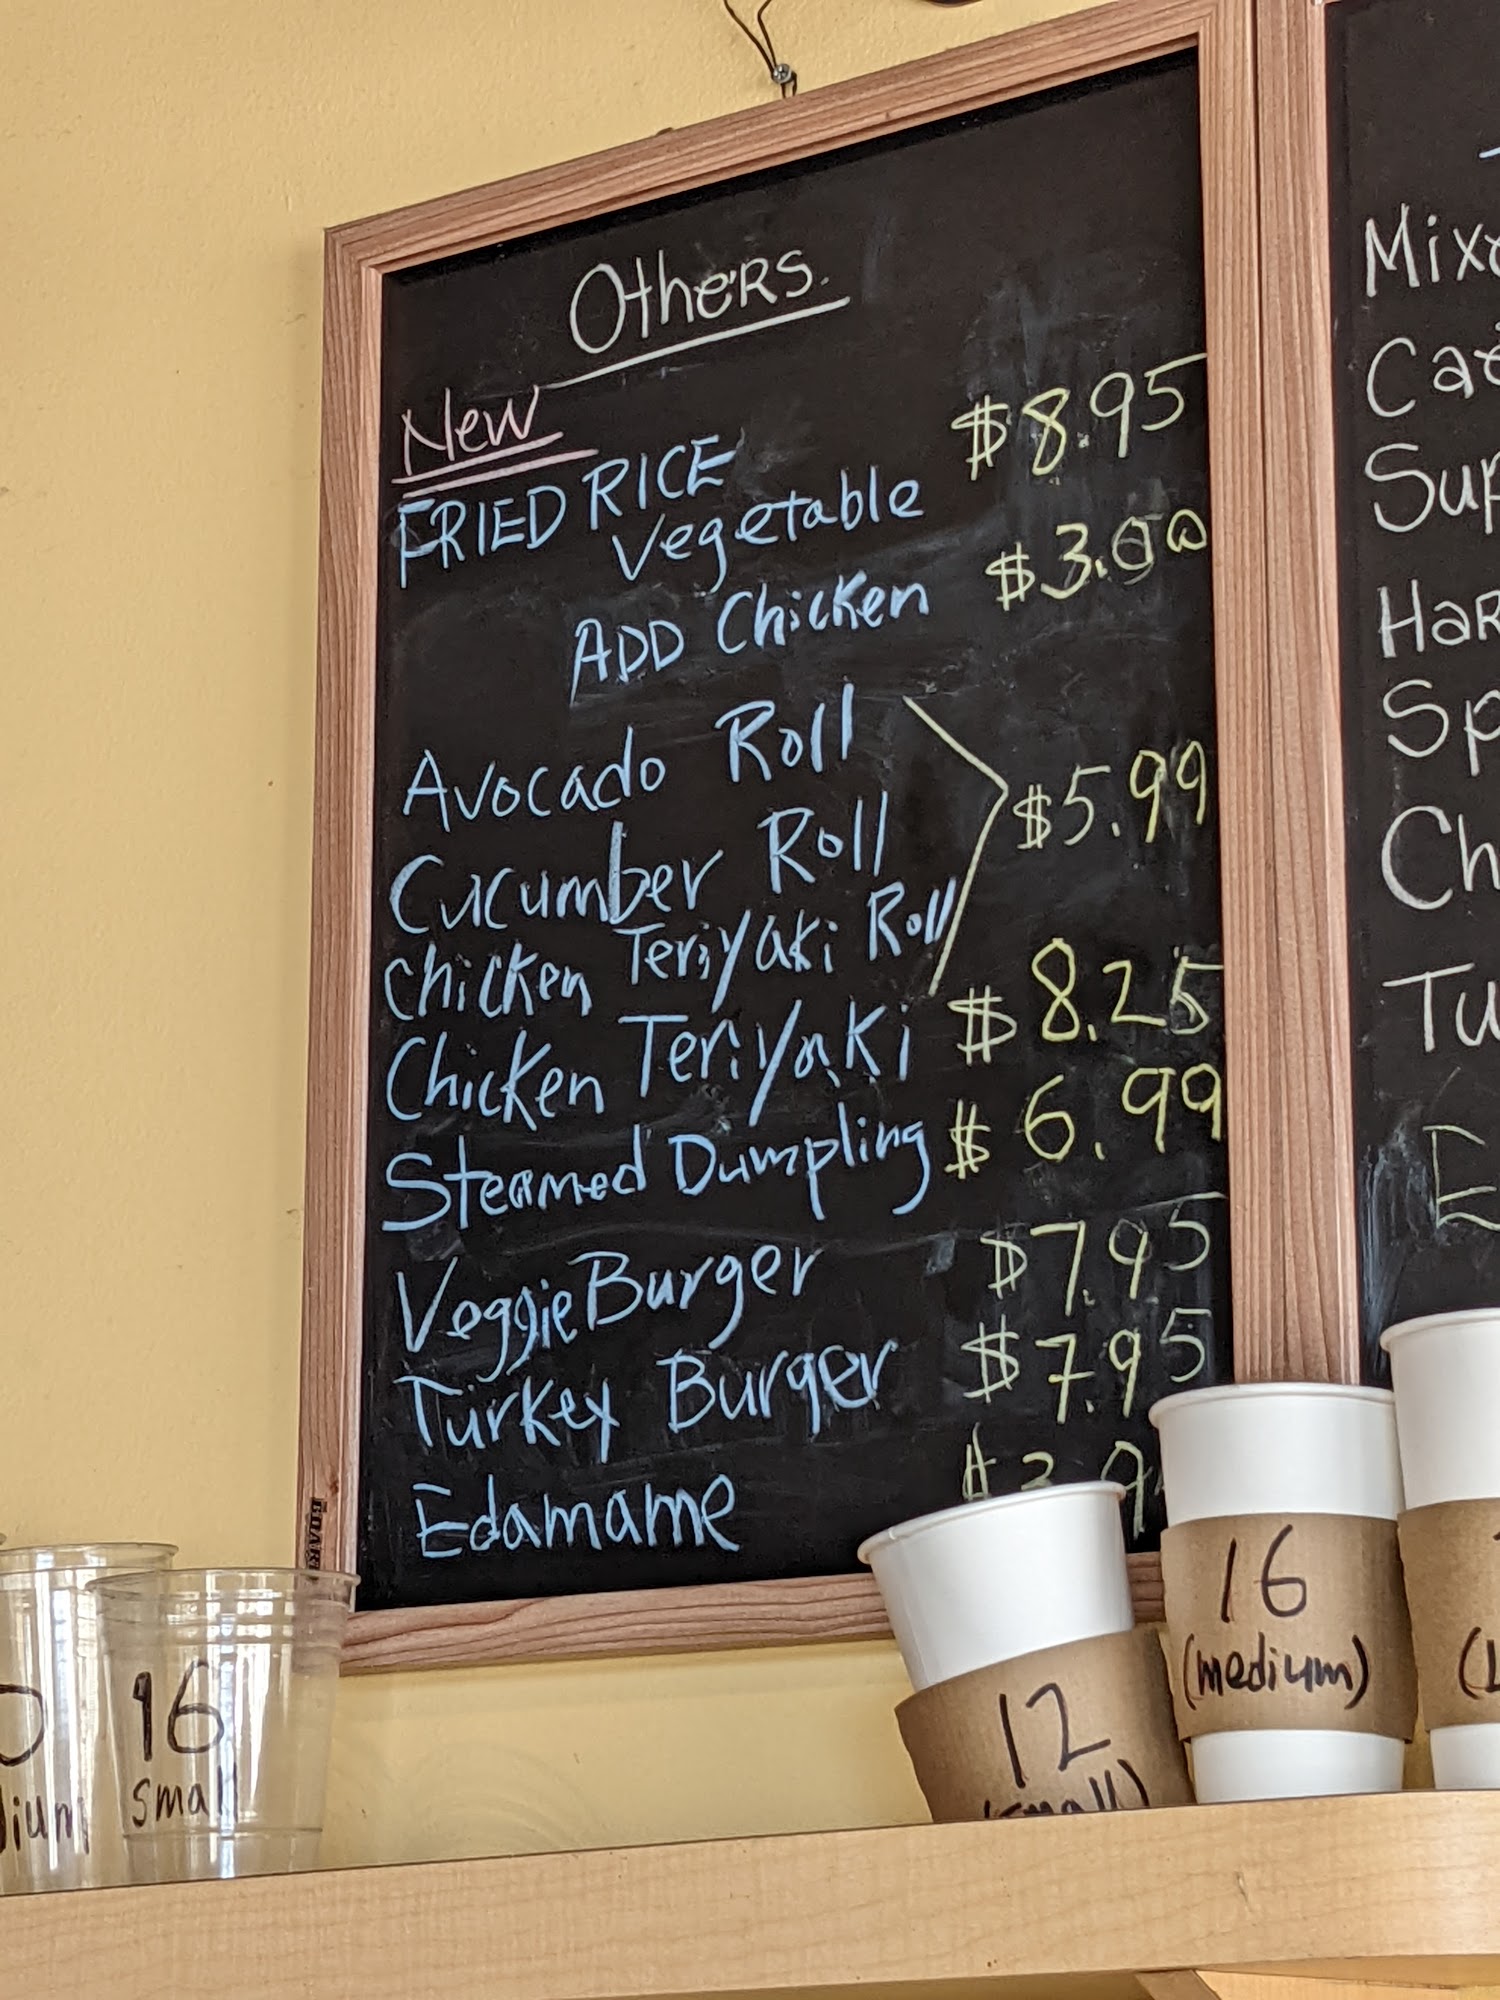 Others.
New
FRIED RICE $8.95
Vegetable
ADD Chicken $3.00
Avocado Roll
Cucumber Roll $5.99
Chicken Teriyaki Roll
Chicken Teriyaki $8.25
Steamed Dumpling $6.99
Veggie Burger $7.95
Turkey Burger $7.95
Edamame
16
small
12
(small)
16
(medium)